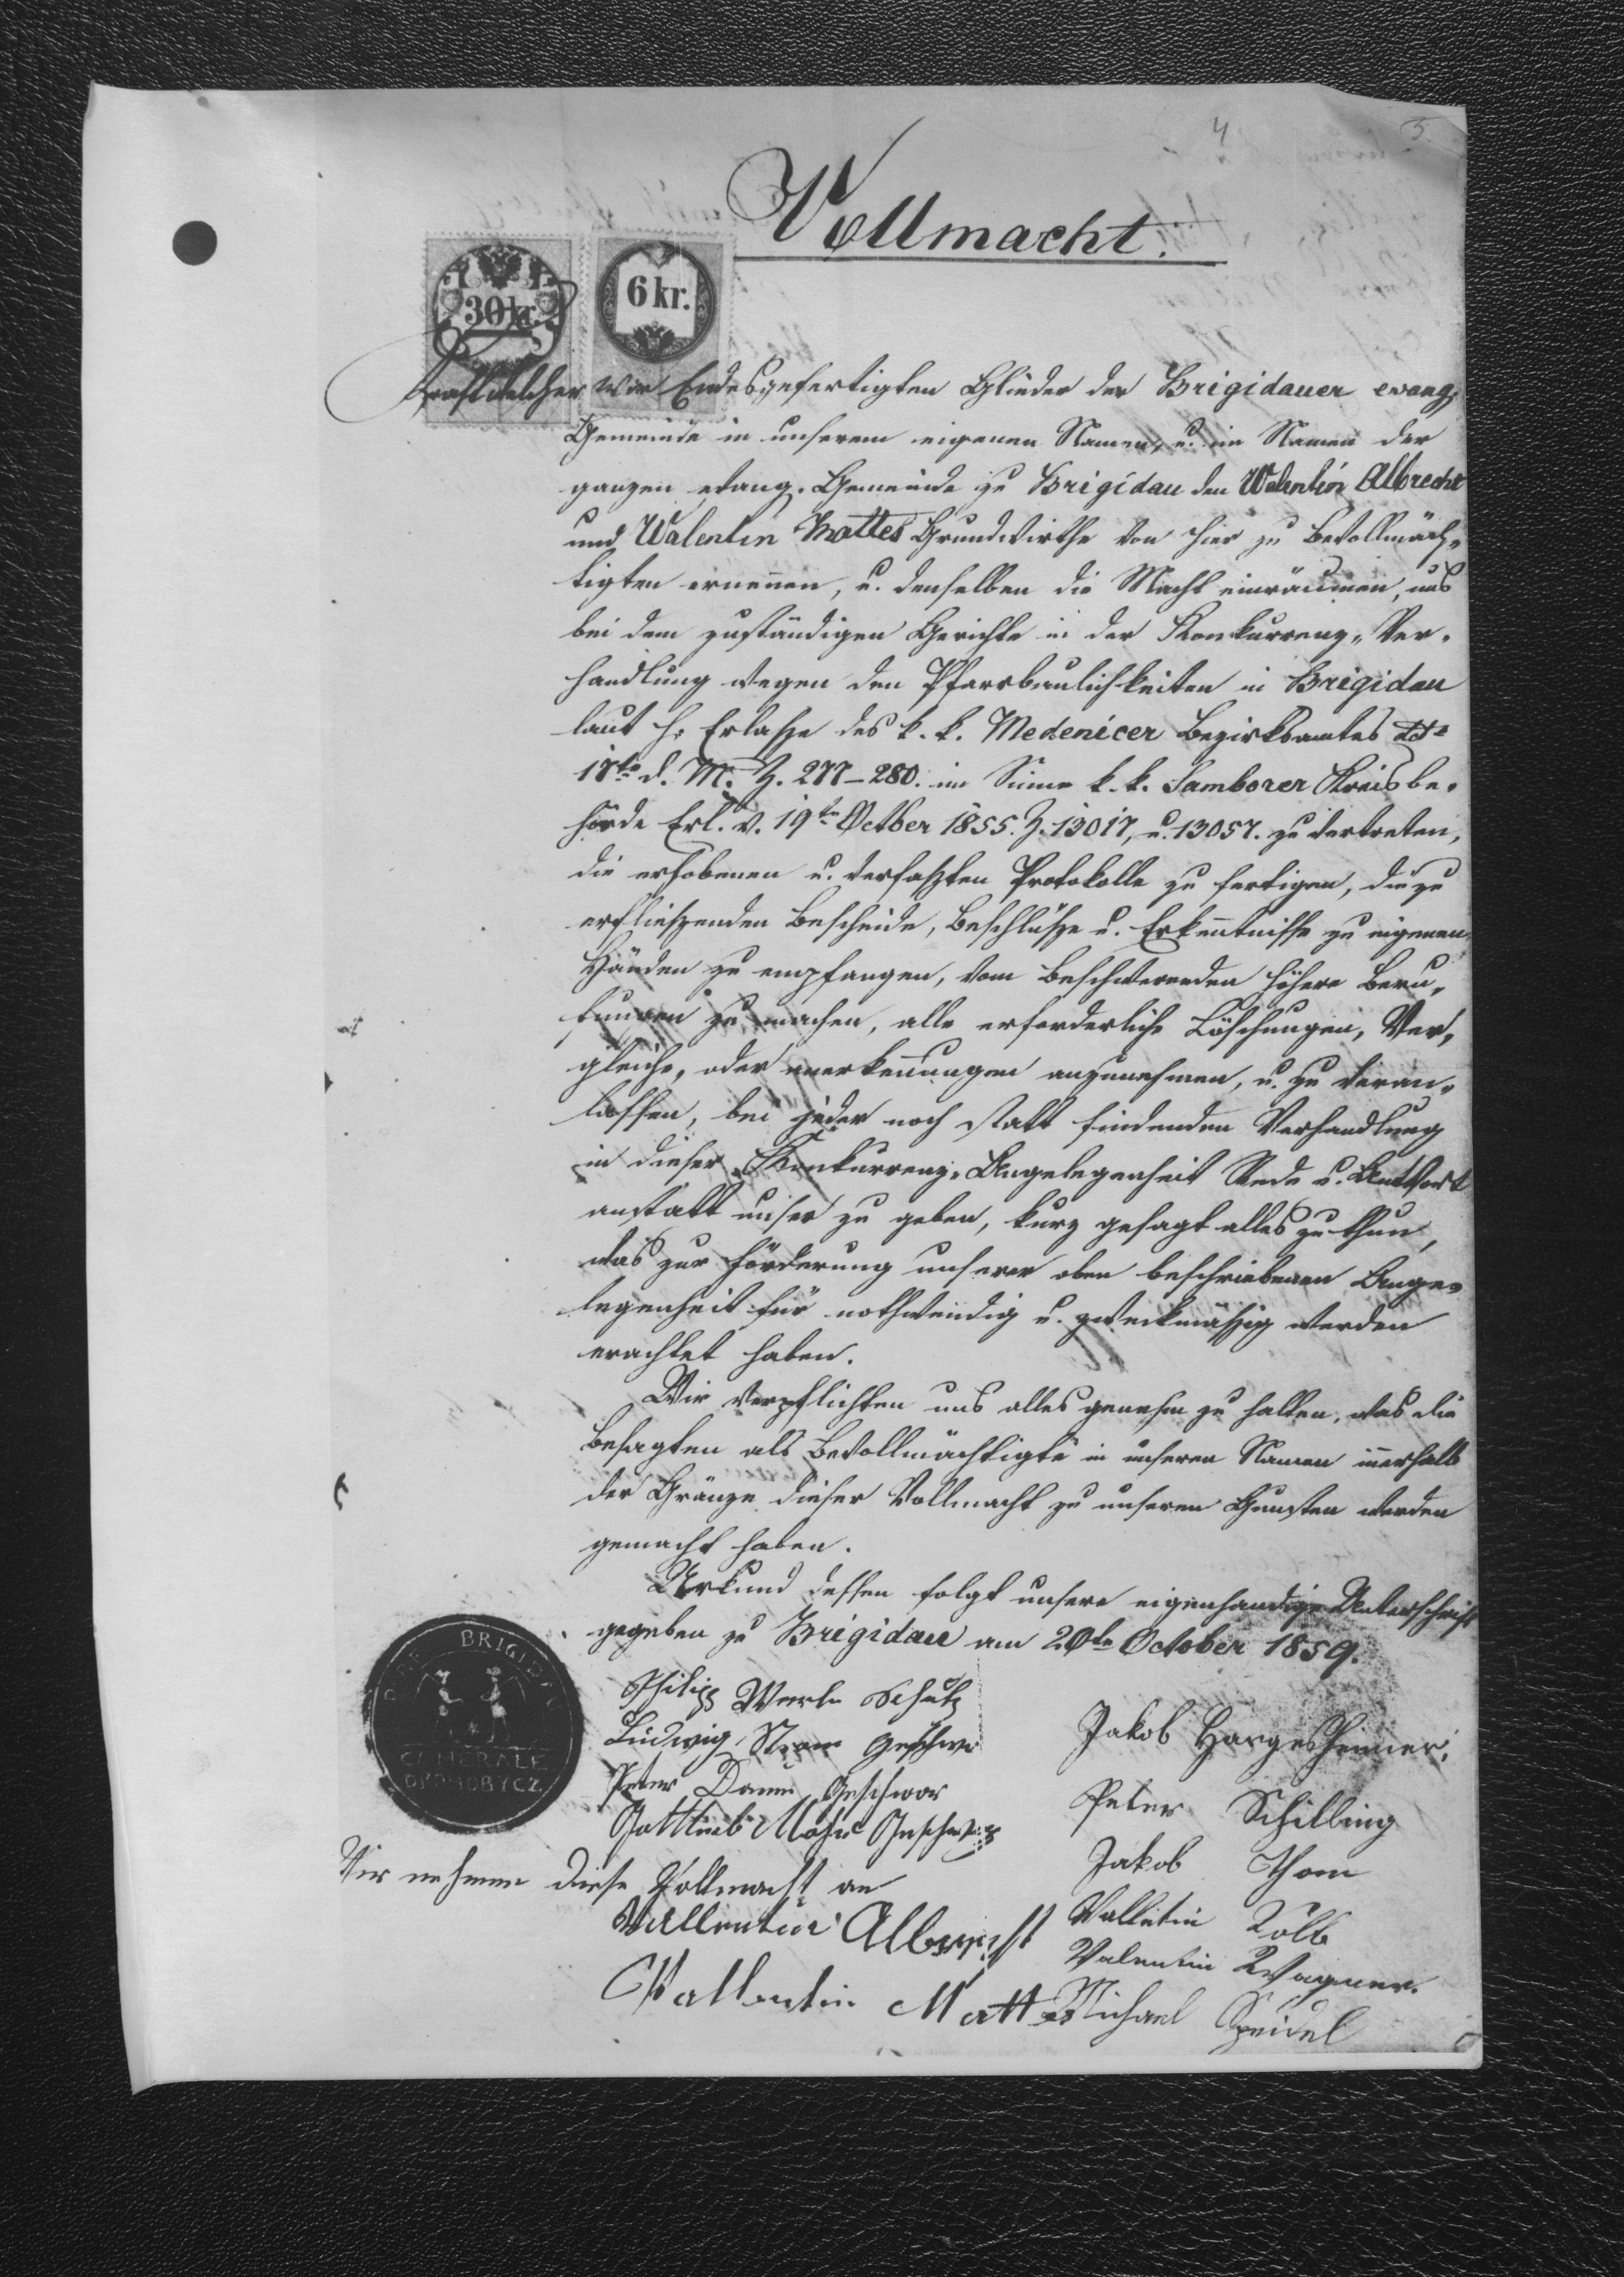 4
5.
Vollmacht.
30 kr.
6 kr.
Kraft welcher wir Endesgefertigten Glieder der Brigidauer evang.
Gemeinde in unserem eigenen Namen, u. im Namen der
ganzen evang. Gemeinde zu Brigidau den Walentin Albrecht
und Walentin Mattes Grundwirthe von hier zu Bevollmäch„
tigten ernennen, u. denselben die Macht einräumen, uns
bei dem zuständigen Gerichte in der Konkurrenz-Ver-
handlung wegen den Pfarrbaulichkeiten in Brigidau
laut h. Erlaße des k. k. Medenicer Bezirksamtes
17te d. M. Z. 277-280. im Sinne k. k. Samborer Kreisbe-
hörde Erl. v. 19ten Octber 1855. Z. 13017, u. 13057. zu vertreten,
die erhobenen u. verfaßten Protokolle zu fertigen, die zu
erfließenden Bescheide, Beschlüße u. Erkenntnisse zu eigenen
Händen zu empfangen, vom beschwerenden höhere Beru„
fungen zu machen, alle erforderliche Löschungen, Ver„
gleiche, oder anerkennungen anzunehmen, u. zu veran„
lassen, bei jeder noch statt findenden Verhandlung
in dieser Konkurrenz-Angelegenheit Rede u. Antwort
anstatt unser zu geben, kurz gesagt alles zu thun,
was zur Förderung unserer oben beschriebenen Ange-
legenheit für nothwendig u. zweckmäßig werden
erachtet haben.
Wir verpflichten uns alles genehm zu halten, was die
Besagten als Bevollmächtigte in unseren Namen innerhalb
der Gränze dieser Vollmacht zu unseren Gunsten werden
gemacht haben.
Urkund dessen folgt unsere eigenhandige Unterschrift
gegeben zu Brigidau am 20te October 1859.
BRIGIDAU
DROHOBYCZ
Philipp Werle Schulz
Ludwig Geschwo
Peter Damm Geschwor
Gottlieb Mohr Geschwor
Jakob Hargesheimer.
Peter Schilling
Jakob Thom
Vallentin Kolb
Valentin Wagner.
Michael Speidel
Wir nehmen diese Vollmacht an
Vallentin Albrecht
Vallentin Mattes